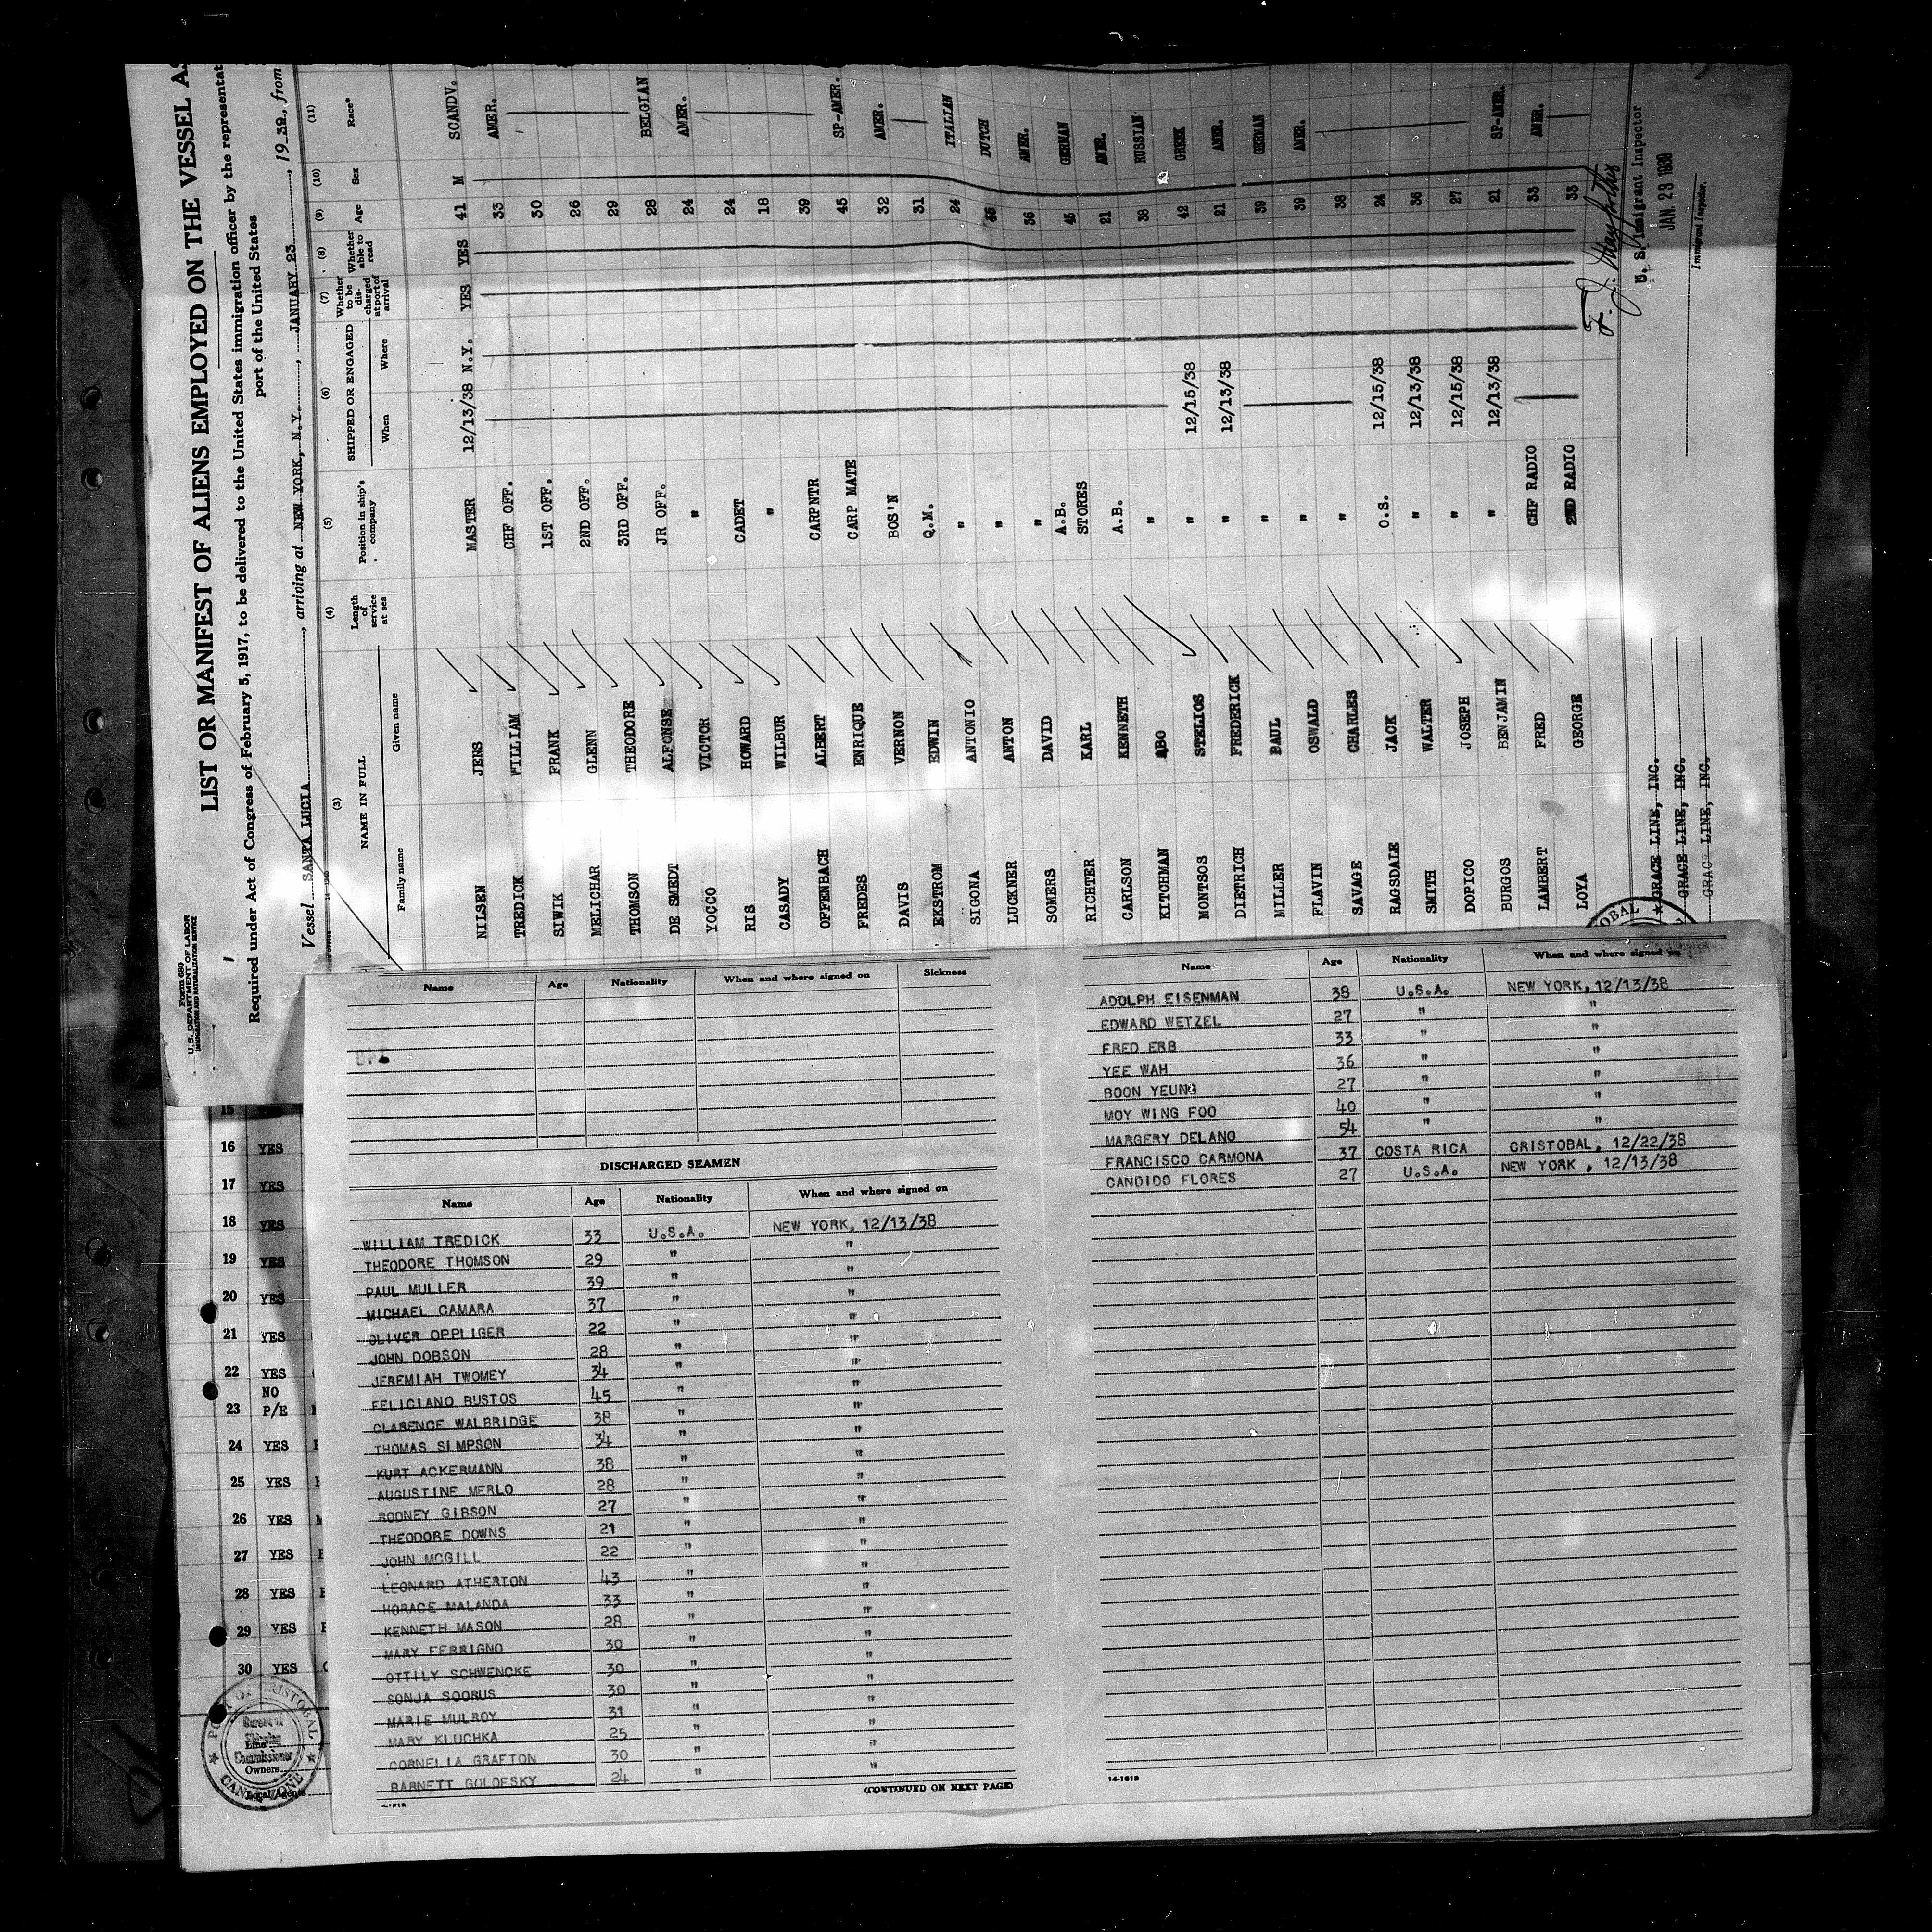 Form 680
U. S. DEPARTMENT OF LABOR
IMMIGRATION AND NATURALIZATION SERVICE
LIST OR MANIFEST OF ALIENS EMPLOYED ON THE VESSEL AS
Required under Act of Congress of February 5, 1917, to be delivered to the United States immigration officer by the representat
port of the United States
Vessel SANTA LUCIA, arriving at NEW YORK, N.Y., JANUARY 23, 1939, from
(3) (4) (5) (6) (7) (8) (9) (10) (11)
NAME IN FULL Length of service at sea Position in ship's company SHIPPED OR ENGAGED Whether to be discharged at port of arrival Whether able to read Age Sex Race*
Family name Given name When Where
NILSEN JENS MASTER 12/13/38 N.Y. YES YES 41 M SCANDV.
TREDICK WILLIAM CHF OFF. 33 AMER.
SIWIK FRANK 1ST OFF. 30
MELICHAR GLENN 2ND OFF. 26
THOMSON THEODORE 3RD OFF. 29
DE SMEDT ALFONSE JR OFF. 28 BELGIAN
YOCCO VICTOR " 24 AMER.
RIS HOWARD CADET 24
CASADY WILBUR " 18
OFFENBACH ALBERT CARPNTR 39
FREDES ENRIQUE CARP MATE 45 SP-AMER.
DAVIS VERNON BOS'N 32 AMER.
EKSTROM EDWIN Q.M. 31
SIGONA ANTONIO " 24 ITALIAN
LUCKNER ANTON " DUTCH
SOMERS DAVID " 36 AMER.
RICHTER KARL A.B. STORES 45 GERMAN
CARLSON KENNETH A.B. 21 AMER.
KITCHMAN ABO " 38 RUSSIAN
MONTSOS STELIOS " 12/15/38 42 GREEK
DIETRICH FREDERICK " 12/13/38 21 AMER.
MILLER PAUL " 39 GERMAN
FLAVIN OSWALD " 39 AMER.
SAVAGE CHARLES " 38
RAGSDALE JACK O.S. 12/15/38 24
SMITH WALTER " 12/13/38 36
DOPICO JOSEPH " 12/15/38 27
BURGOS BENJAMIN " 12/13/38 21 SP-AMER.
LAMBERT FRED CHF RADIO 33 AMER.
LOYA GEORGE 2ND RADIO 33
GRACE LINE, INC.
GRACE LINE, INC.
GRACE LINE, INC.
U. S. Immigrant Inspector
JAN 23 1939
Immigrant Inspector.
Name Age Nationality When and where signed on Sickness
DISCHARGED SEAMEN
Name Age Nationality When and where signed on
WILLIAM TREDICK 33 U.S.A. NEW YORK, 12/13/38
THEODORE THOMSON 29 " "
PAUL MULLER 39 " "
MICHAEL CAMARA 37 " "
OLIVER OPPLIGER 22 " "
JOHN DOBSON 28 " "
JEREMIAH TWOMEY 34 " "
FELICIANO BUSTOS 45 " "
CLARENCE WALBRIDGE 38 " "
THOMAS SIMPSON 34 " "
KURT ACKERMANN 38 " "
AUGUSTINE MERLO 28 " "
RODNEY GIBSON 27 " "
THEODORE DOWNS 21 " "
JOHN MCGILL 22 " "
LEONARD ATHERTON 43 " "
HORACE MALANDA 33 " "
KENNETH MASON 28 " "
MARY FERRIGNO 30 " "
OTTILY SCHWENCKE 30 " "
SONJA SOORUS 30 " "
MARIE MULROY 31 " "
MARY KLUCHKA 25 " "
CORNELIA GRAFTON 30 " "
BARNETT GOLOFSKY 24 " "
(CONTINUED ON NEXT PAGE)
Name Age Nationality When and where signed on
ADOLPH EISENMAN 38 U.S.A. NEW YORK, 12/13/38
EDWARD WETZEL 27 " "
FRED ERB 33 " "
YEE WAH 36 " "
BOON YEUNG 27 " "
MOY WING FOO 40 " "
MARGERY DELANO 54 " "
FRANCISCO CARMONA 37 COSTA RICA CRISTOBAL, 12/22/38
CANDIDO FLORES 27 U.S.A. NEW YORK, 12/13/38
14-1618
15
16 YES
17 YES
18 YES
19 YES
20 YES
21 YES
22 YES
NO
23 P/E
24 YES
25 YES
26 YES
27 YES
28 YES
29 YES
30 YES
PORT OF CRISTOBAL
Bureau of
Shipping
Commissioner
CANAL ZONE
Line
Owners
Local Agents